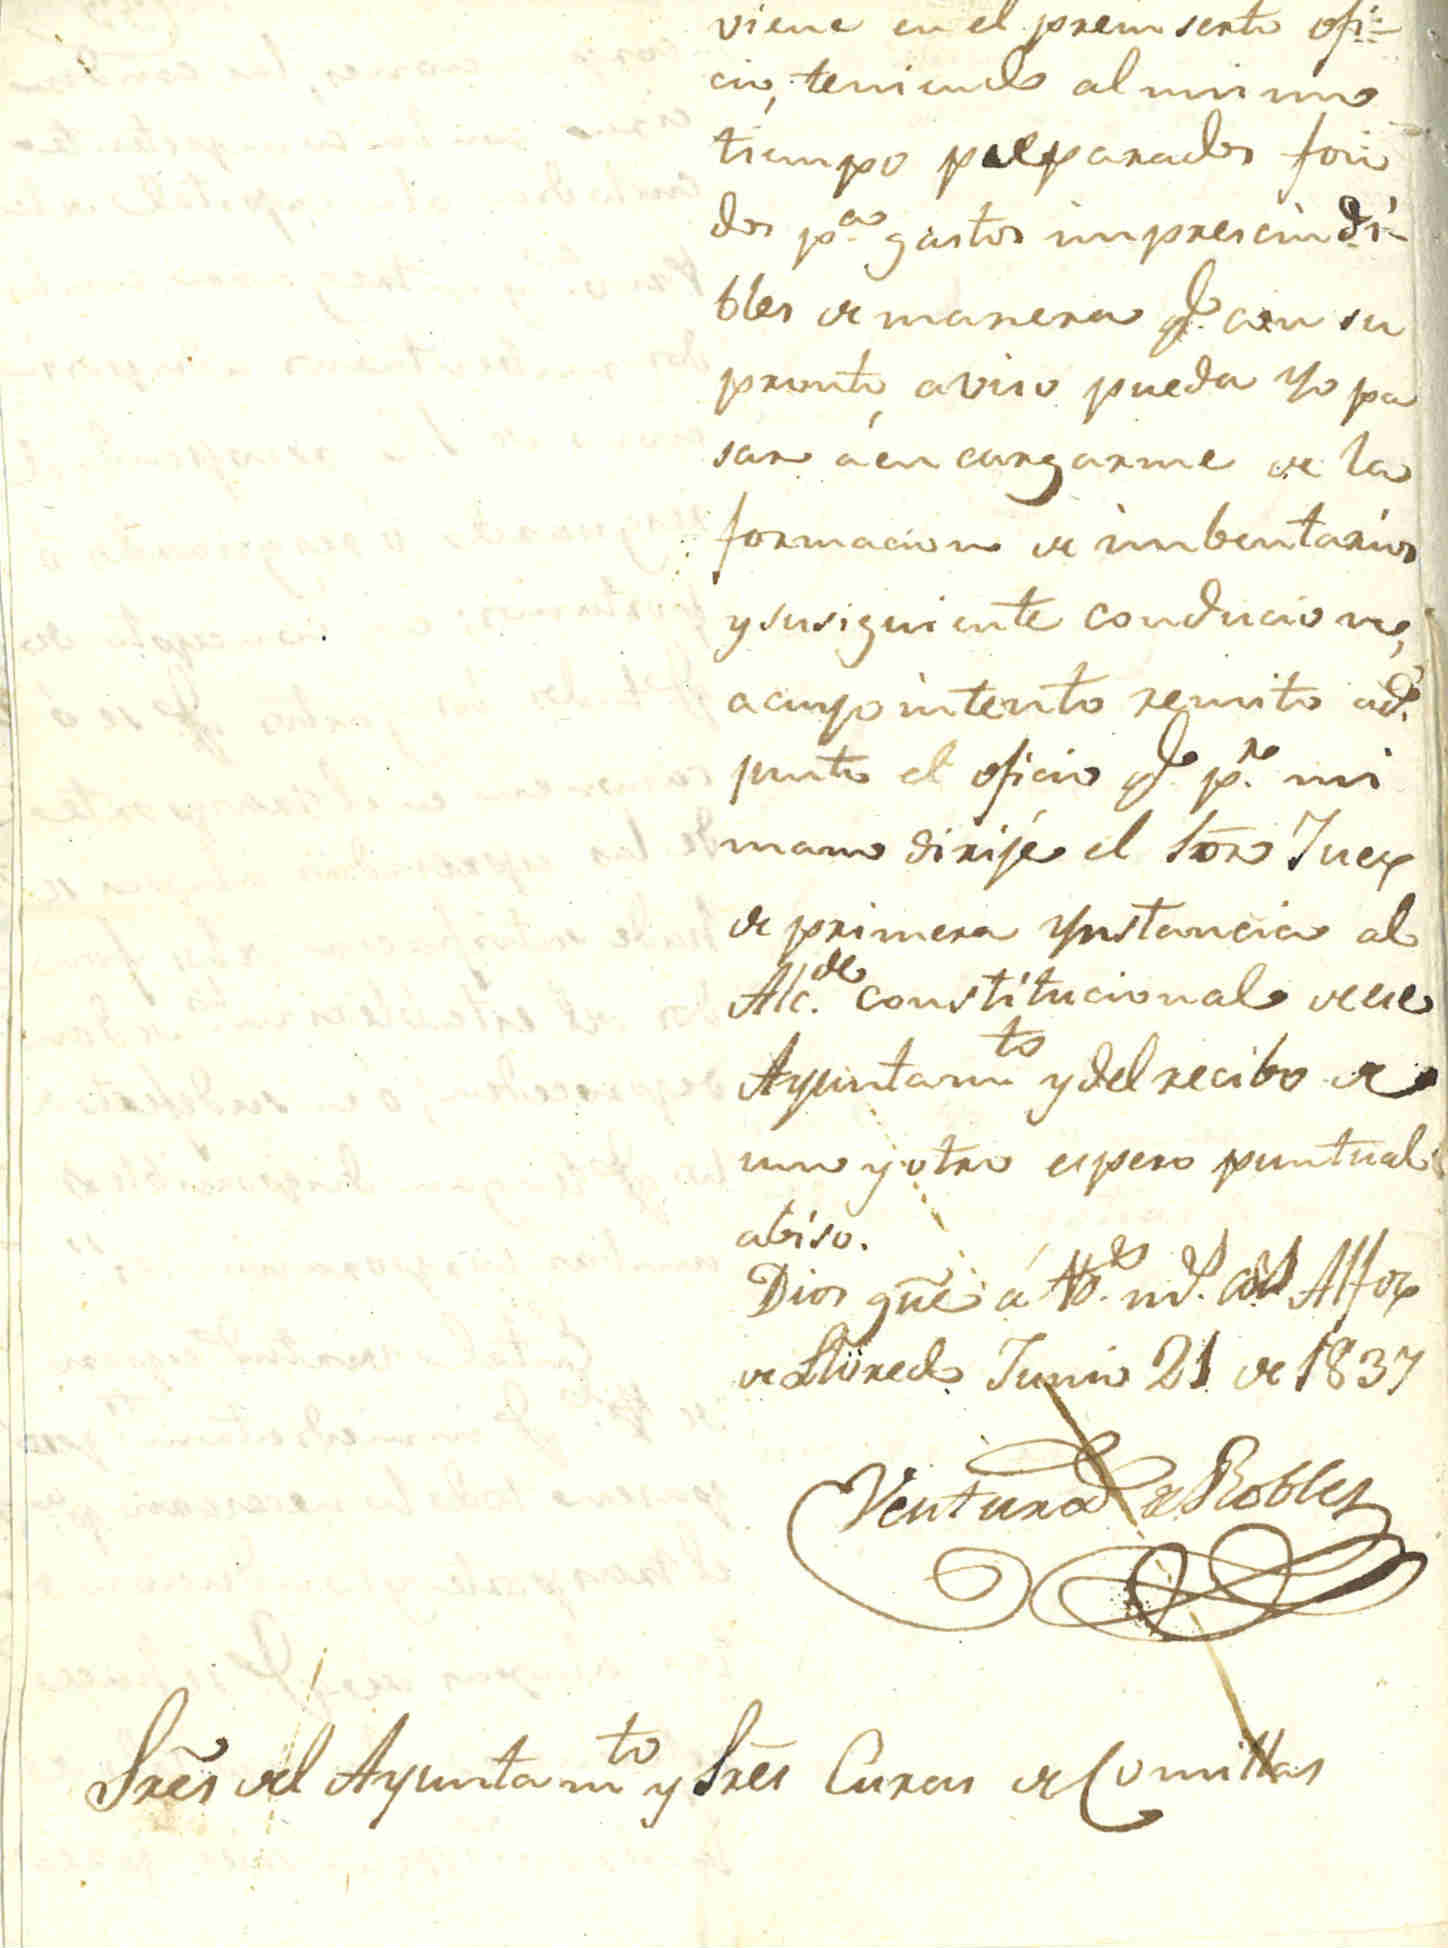 viene en el preinserto ofi-
cio, teniendo al mismo
tiempo preparados fon
dos p.ª gastos imprescindi-
bles de manera q.e con su
pronto aviso pueda yo pa
sar á encargarme de la
formacion de imbentarios
y susiguiente conducion,
a cuyo intento remito ad
junto el oficio q.e p.r mi
mano dirije el Sõr Juez
de primera Ynstancia al
Alc.de constitucional de ese
Ayuntam.to y del recibo de
uno y otro espero puntual
abiso.
Dios gũe á m.s a.s Alfoz
de Lloredo Junio 21 de 1837
Ventura de Robles
Srẽs del Ayuntam.to y Srẽs Curas de Comillas